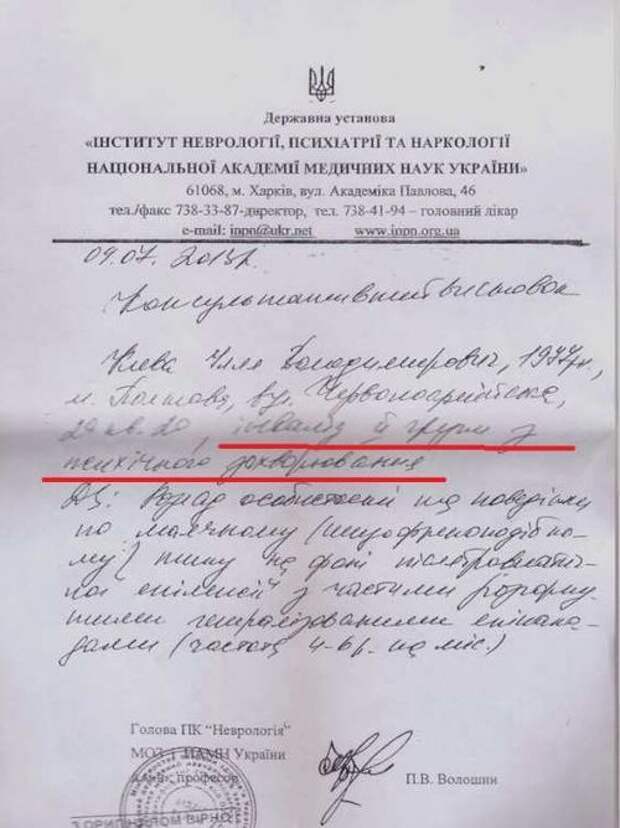 Державна установа
«ІНСТИТУТ НЕВРОЛОГІЇ, ПСИХІАТРІЇ ТА НАРКОЛОГІЇ
НАЦІОНАЛЬНОЇ АКАДЕМІЇ МЕДИЧНИХ НАУК УКРАЇНИ»
61068, м. Харків, вул. Академіка Павлова, 46
тел./факс 738-33-87-директор, тел. 738-41-94 – головний лікар
e-mail: inpn@ukr.net www.inpn.org.ua
09.07. 2013р.
Консультативний висновок
Ілля Володимирович, 1977р.н.,
м. Полтава, вул. Червоноармійська,
інвалід ІІ групи з
психічного захворювання
Розлад особистості та поведінки
по маячному (шизофреноподібно-
му) типу на фоні післятравматич-
ної епілепсії з частими
генералізованими епінапа-
дами (частота 4-6р. на міс.)
Голова ПК “Неврологія”
МОЗ НАМН України
професор
П.В. Волошин
З ОРИГІНАЛОМ ВІРНО